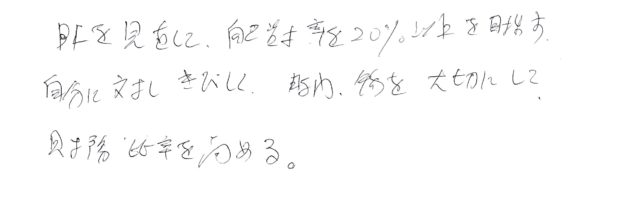 BLを見直して、自己資本率を20%以上を目指す
自分に対し きびしく、 を大切にして
財務比率を高める。